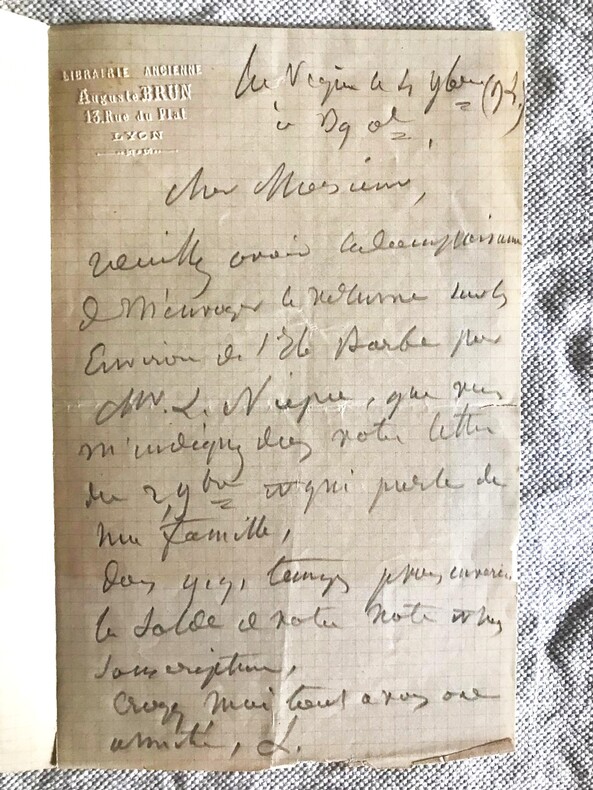 LIBRAIRIE ANCIENNE
Auguste BRUN
13, Rue du Plat
LYON
le 4 9bre
à
cher Monsieur,
veuillez avoir la complaisance
de m'envoyer le volume sur les
Environ de l'Ile Barbe par
Mr. L. Niepce, que vous
m'indiquez dans votre lettre
du 2, 9bre qui parle de
ma famille,
dans qqs temps je vous enverrai
le solde de votre note
souscription,
Croyez moi tout a vous
amitié, L.